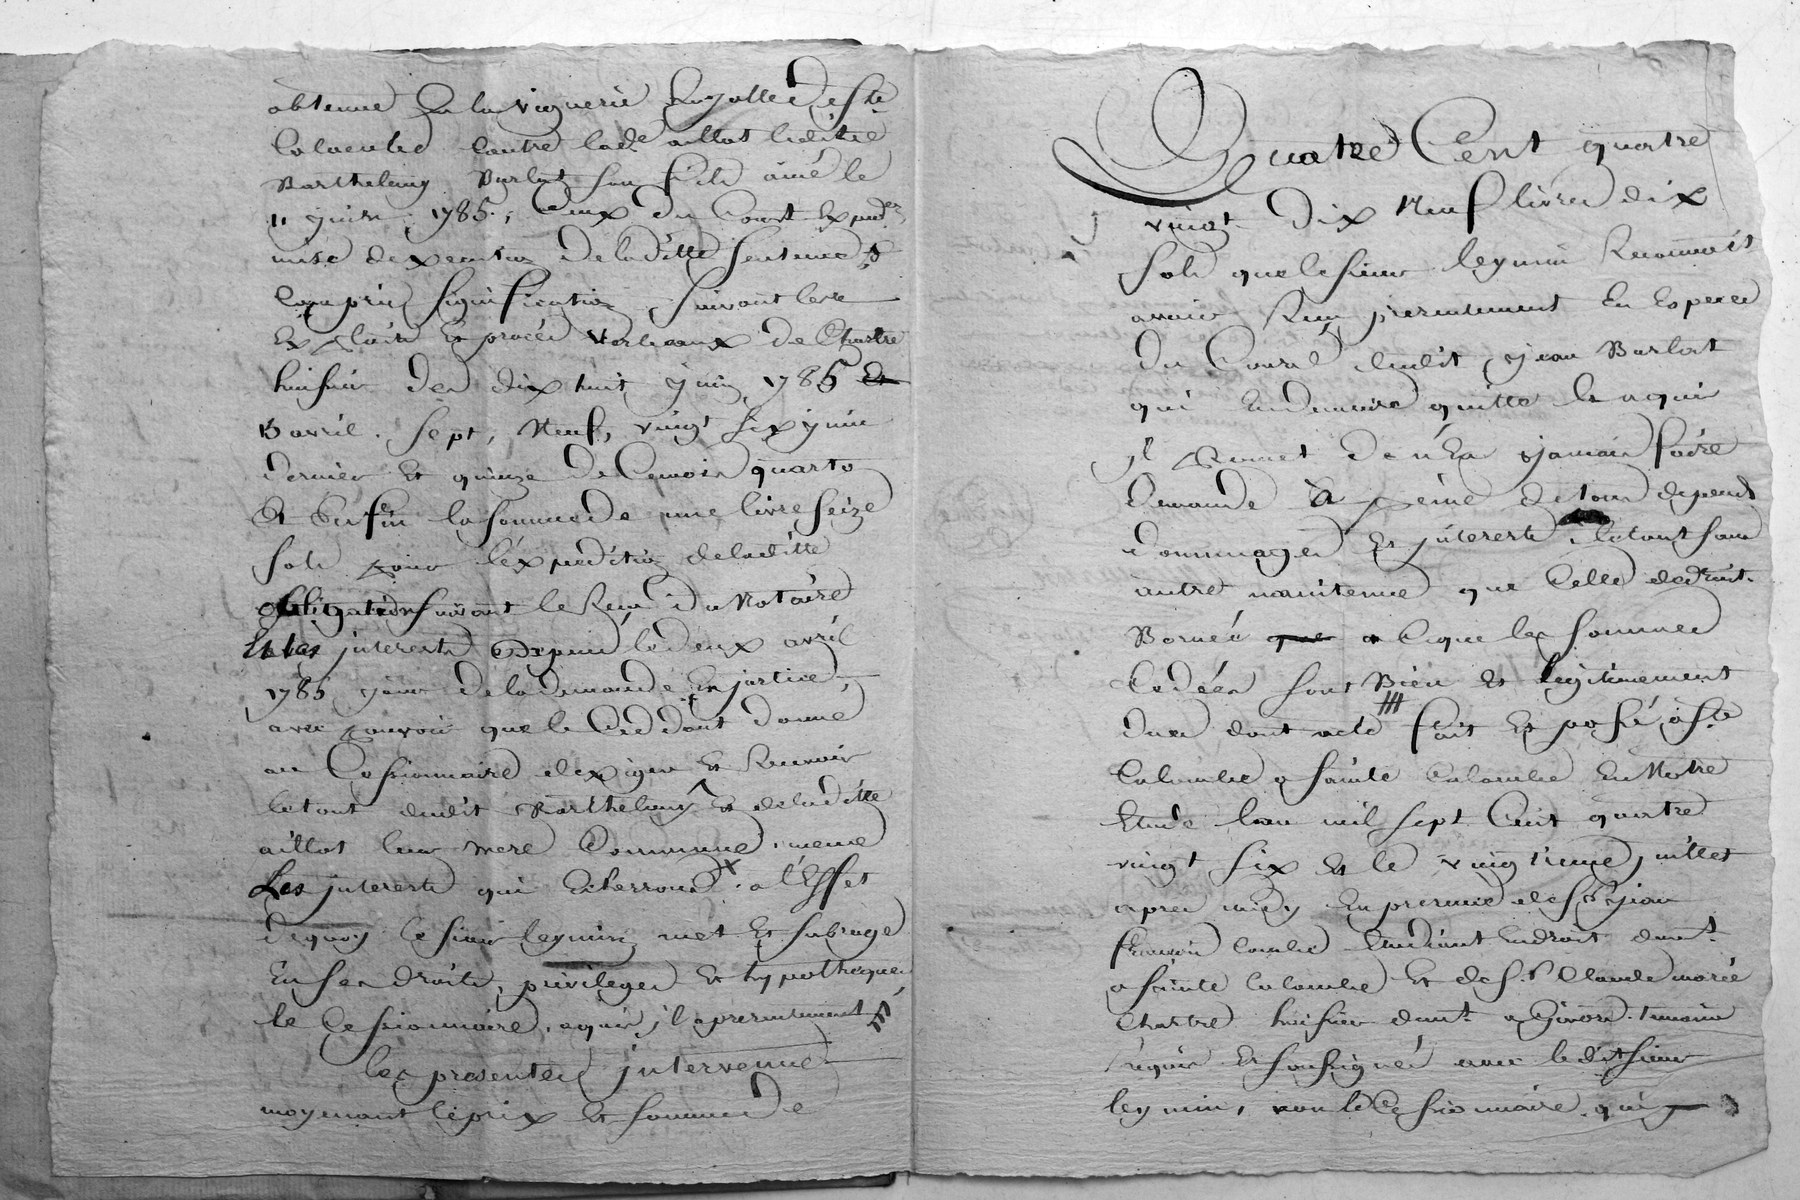 obtenue En la viguerie Royalle de Ste
Colombe Contre lade aillot ledit
Barthelemy Burlat son fils ainé le
11 juin 1785; Ceux du Court
mise dexecution De laditte Sentence &
Compris signification, suivant les
Exploits Et procés verbeaux de Chartre
huissier des dix huit juin 1785 Et
13 avril. Sept, Neuf, vingt six juin
dernier Et quinze De Cemois quarto
Et Enfin la somme de une livre seize
sols pour l'Expedition de laditte
obligation suivant le Recu Du Notaire
Et les interests Depuis le deux avril
1785 jour De la demande En justice,
avec pouvoir que le Ceddant donne
au Cessionnaire dexiger Et Recevoir
le tout dudit Barthelemy Et de laditte
aillot leur mere Commune, meme
Les interests qui Echerront x. a l'Effet
de quoy le sieur leymin met Et subroge
En ses droits, privileges Et hypotheques
le Cessionnaire, a presentement
les presentes intervenue
moyenant le prix Et somme De
Quatre Cent quatre
vingt Dix Neuf livres dix
sols que le sieur leymin Reconnoit
avoir Recu presentement En Especes
du Cours dudit jean Burlat
qui En demeure quitte
il Promet De n'En jamais faire
demande à peine de tous depends
dommages Et interests, le tout sans
autre maintenue que Celle de droit
Bornée a Ceque les sommes
Cedées sont Bien Et legitimement
dues dont acte fait Et passé à Ste
Colombe a sainte Colombe En Notre
Etude l'an mil sept Cent quatre
vingt six Et le vingtieme juillet
apres midy En presence de Sr jean
francois Combe Etudiant En droit demt
a sainte Colombe Et de Sr Claude marie
Chartre huissier demt a Givors temoins
requis Et soussignés avec ledit sieur
leymin, non le Cessionnaire qui